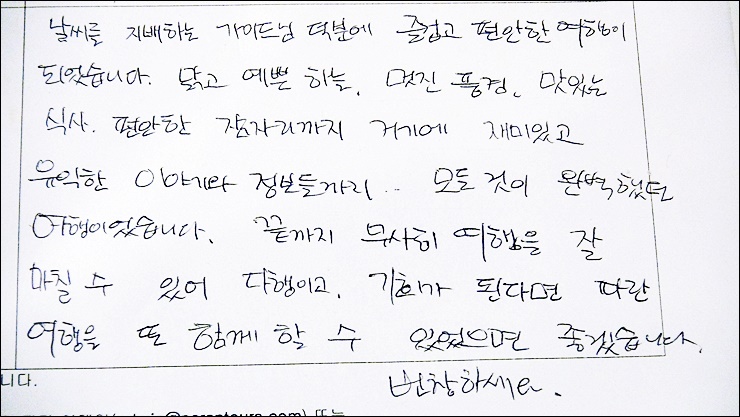 날씨를 지배하는 가이드님 덕분에 즐겁고 편안한 여행이
되었습니다. 맑고 예쁜 하늘, 멋진 풍경, 맛있는
식사, 편안한 잠자리까지 거기에 재미있고
유익한 이야기와 정보들까지.. 모든 것이 완벽했던
여행이었습니다. 끝까지 무사히 여행을 잘
마칠 수 있어 다행이고, 기회가 된다면 다른
여행을 또 함께 할 수 있었으면 좋겠습니다.
번창하세요.
니다.